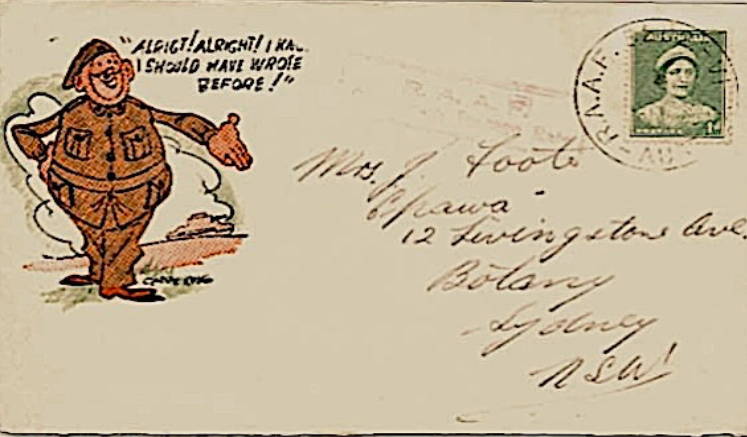 "ALRIGT! ALRIGHT! I KNO.
I SHOULD HAVE WROTE
BEFORE!"
AUSTRALIA
1d
R.A.A.F.
R.A.A.F.
Mrs. J. Foote
12 Livingstone Ave.
Botany
Sydney
NSW